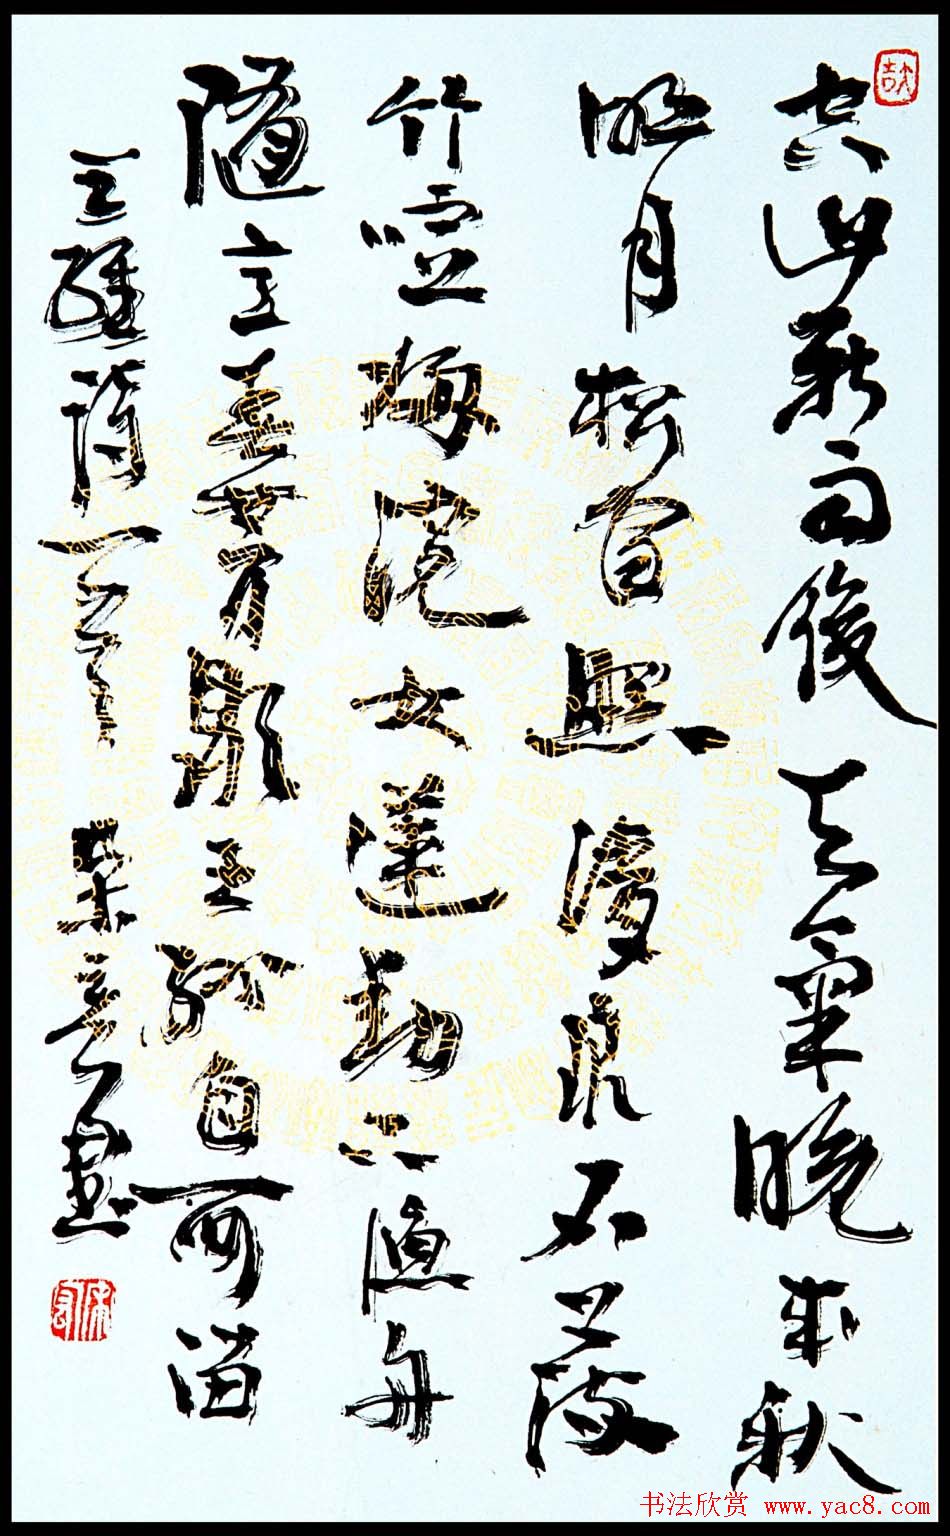 空山新雨後天氣晚來秋
明月松間照清泉石上流
竹喧歸浣女蓮動下漁舟
隨意春芳歇王孫自可留
王維詩一首
书法欣赏 www.yac8.com